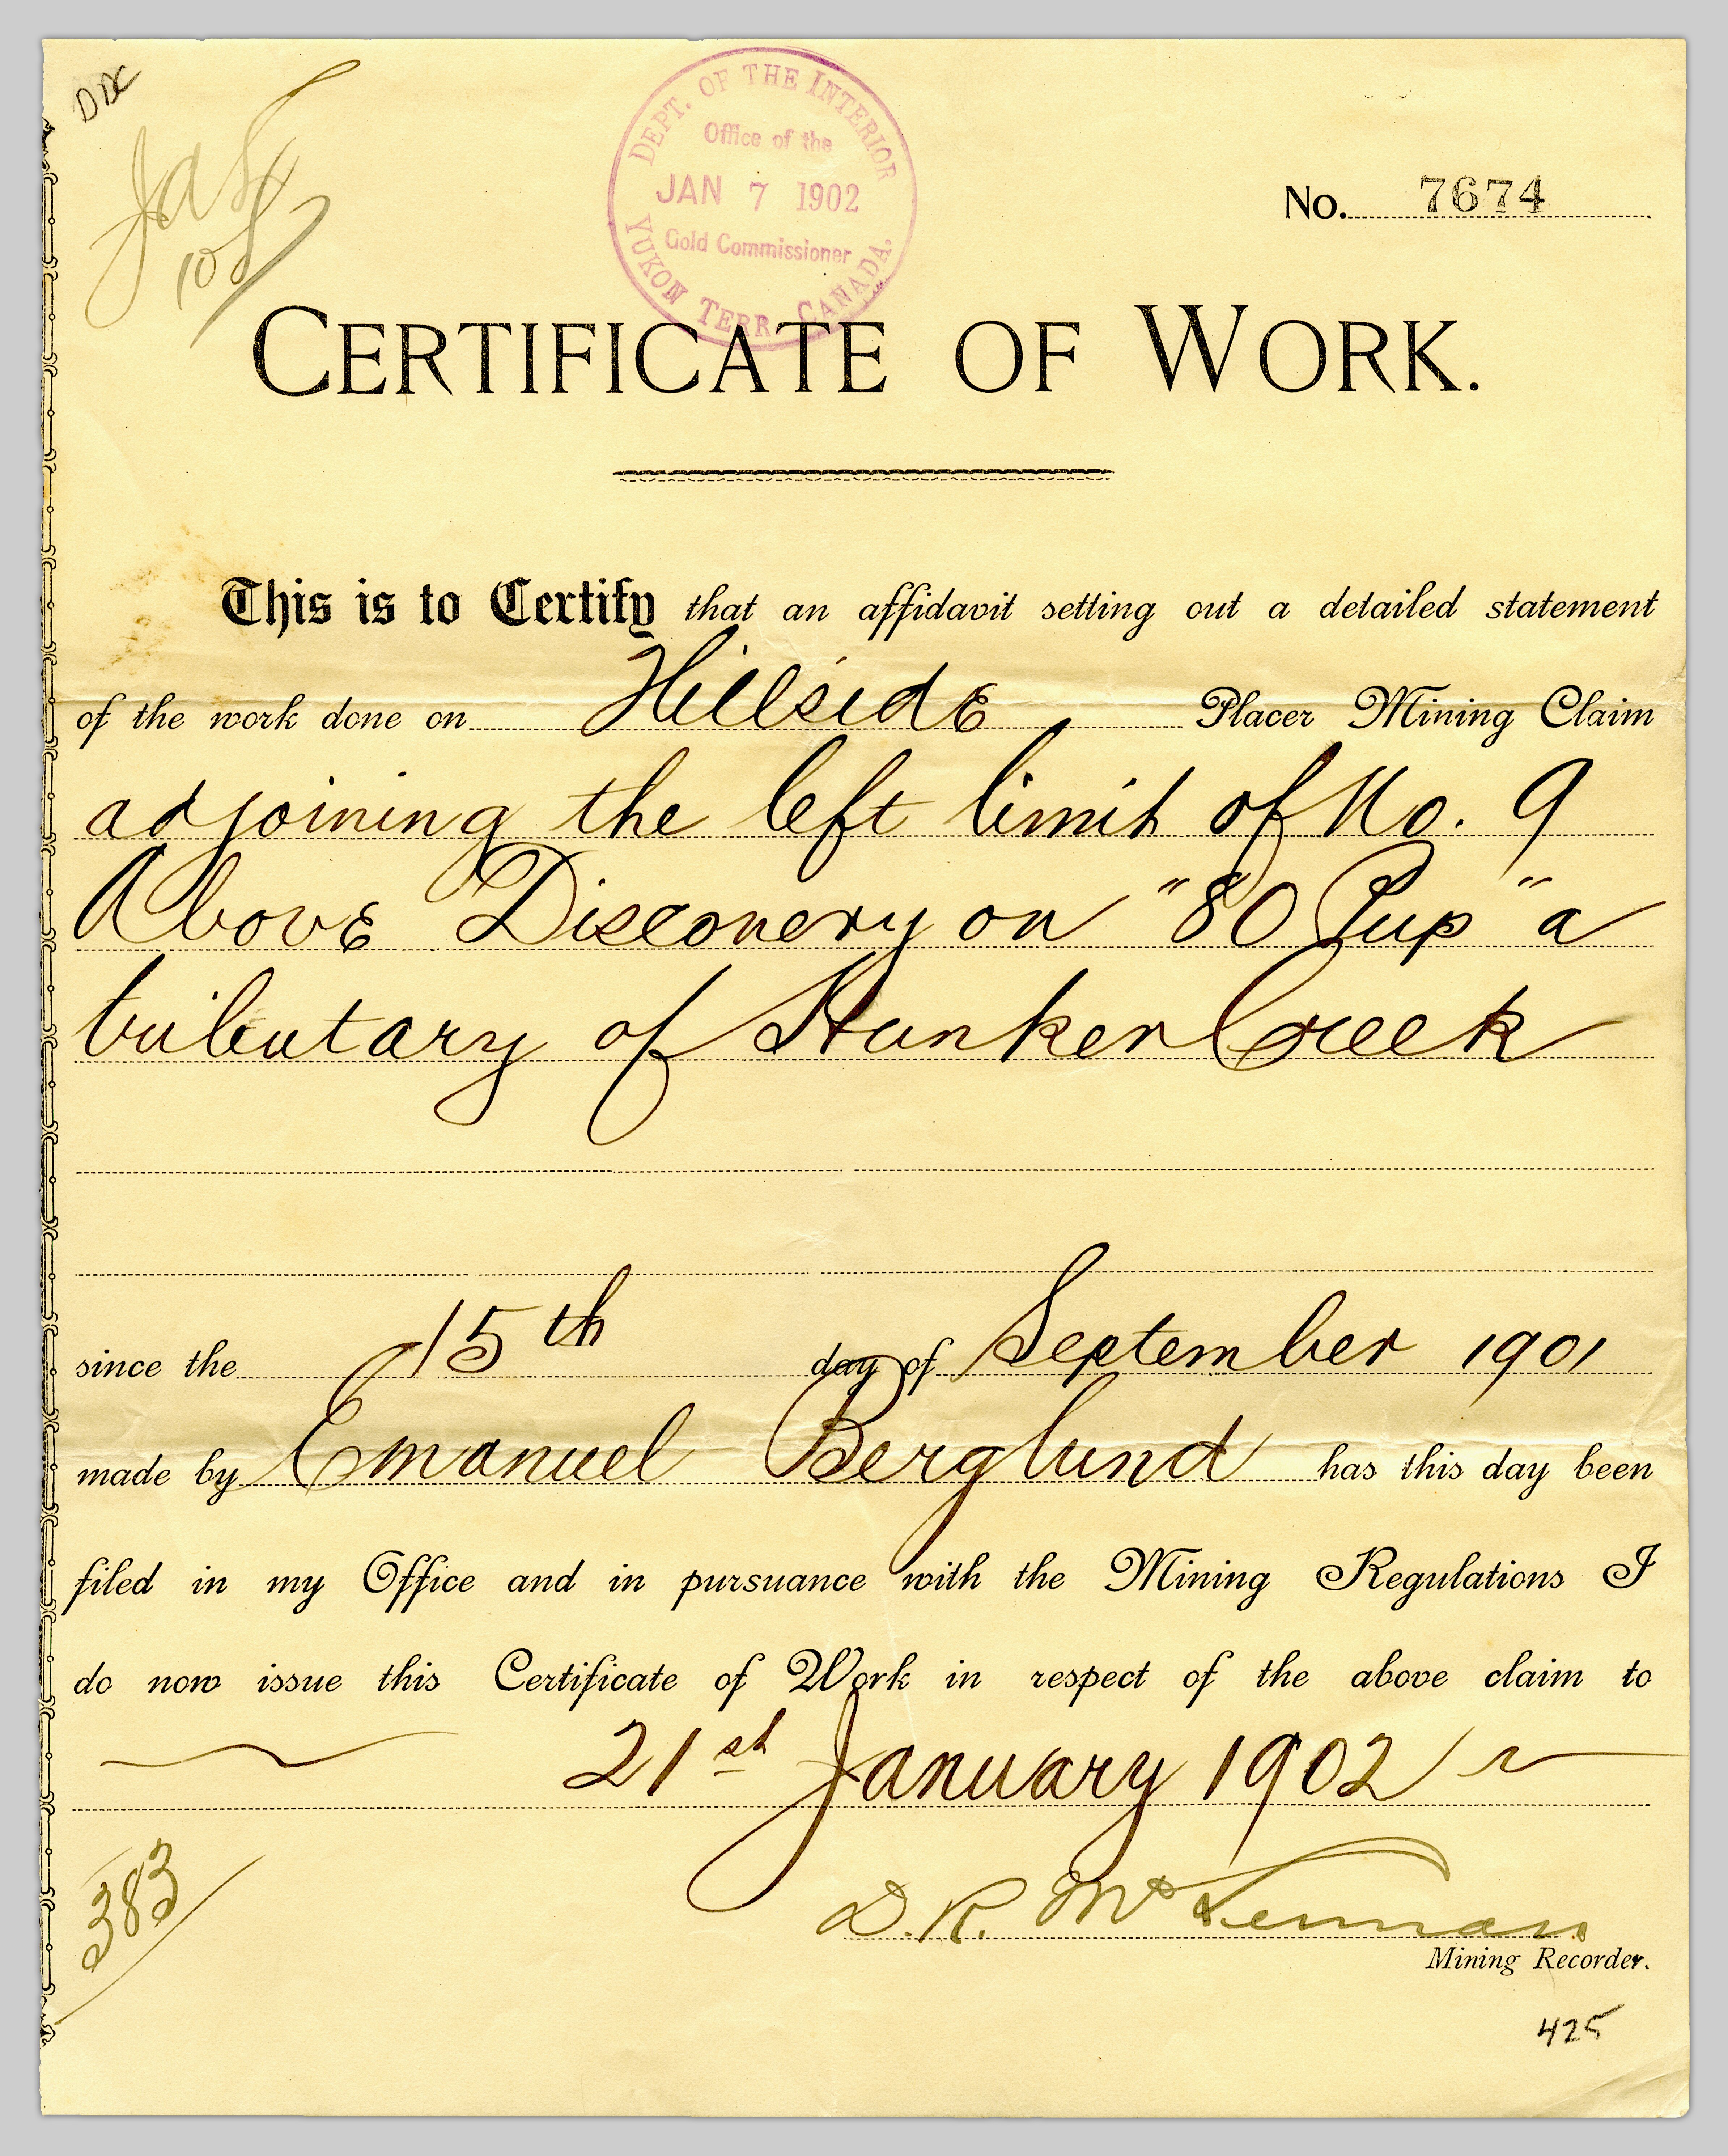 DEPT. OF THE INTERIOR
Office of the
JAN 7 1902
Gold Commissioner
YUKON TERR. CANADA.
No. 7674
CERTIFICATE OF WORK.
This is to Certify that an affidavit setting out a detailed statement
of the work done on Hillside Placer Mining Claim
adjoining the left limit of No. 9
Above Discovery on "80 Pup" a
tributary of Hunker Creek
since the 15th day of September 1901
made by Emanuel Berglund has this day been
filed in my Office and in pursuance with the Mining Regulations I
do now issue this Certificate of Work in respect of the above claim to
21st January 1902
383
D. R. McLennan
Mining Recorder.
425